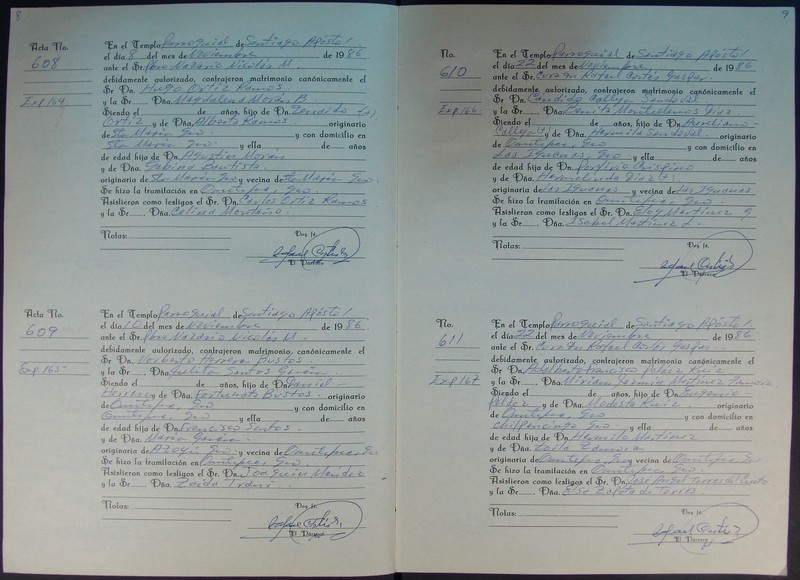 8
Acta No.
608
Exp. 164
En el Templo Parroquial de Santiago Apóstol
el día 8 del mes de Noviembre de 1986
ante el Sr. Pbro Nazario Nicolás M.
debidamente autorizado, contrajeron matrimonio canónicamente el
Sr. Dn. Hugo Ortiz Ramos
y la Sr. Magdalena Morán B.
Siendo el de años, hijo de Dn.
Ortiz y de Dña. Ramos. originario
de Sta María Gro y con domicilio en
Sta María Gro. y ella de años
de edad hija de Dn. Agustín Morán
y de Dña. Gabina Bautista
originaria de Sta María Gro. y vecina de Sta María Gro.
Se hizo la tramitación en Ometepec, Gro.
Asistieron como testigos el Sr. Dn. Carlos Ortiz Ramos
y la Sr. Dña. Celina Montaño.
Notas:
Doy fe.
El Párroco
Acta No.
609
Exp. 165
En el Templo Parroquial de Santiago Apóstol
el día 10 del mes de Noviembre de 1986.
ante el Sr. Pbro Nazario Nicolás M.
debidamente autorizado, contrajeron matrimonio canónicamente el
Sr. Dn. Norberto Herrera Bustos
y la Sr. Julita Santos García
Siendo el de años, hijo de Dn. Daniel
Herrera y de Dña. Fortunata Bustos. originario
de Ometepec, Gro y con domicilio en
Ometepec, Gro y ella de años
de edad hija de Dn. Francisco Santos
y de Dña. María García
originaria de Azoyú Gro y vecina de Ometepec, Gro
Se hizo la tramitación en Ometepec, Gro.
Asistieron como testigos el Sr. Dn. Joaquín Méndez
y la Sr. Dña. Zoida
Notas:
Doy fe.
El Párroco
9
No.
610
Exp. 166
En el Templo Parroquial de Santiago Apóstol
el día 22 del mes de Noviembre de 1986
ante el Sr. Cura Dn Rafael Cortés Gaspar.
debidamente autorizado, contrajeron matrimonio canónicamente el
Sr. Dn. Candido Sandoval
y la Sr. Díaz
Siendo el de años, hijo de Dn. Aureliano
y de Dña. Hermila Sandoval. originario
de Ometepec, Gro y con domicilio en
Las Iguanas, Gro y ella de años
de edad hija de Dn. Porfirio Crispino
y de Dña. Hermelinda Díaz
originaria de Las Iguanas y vecina de Las Iguanas
Se hizo la tramitación en Ometepec, Gro.
Asistieron como testigos el Sr. Dn. Eloy Martínez G
y la Sr. Dña. Isabel Martínez L.
Notas:
Doy fe.
El Párroco
No.
611
Exp. 167
En el Templo Parroquial de Santiago Apóstol
el día 22 del mes de Noviembre de 1986
ante el Sr. Cura Dn Rafael Cortés Gaspar
debidamente autorizado, contrajeron matrimonio canónicamente el
Sr. Dn. Adalberto Francisco Peláez Ruiz
y la Sr. Miriam Jazmín Martínez Zamora
Siendo el de años, hijo de Dn. Eugenio
Peláez y de Dña. Modesta Ruiz. originario
de Ometepec, Gro y con domicilio en
Chilpancingo Gro y ella de años
de edad hija de Dn. Hermilo Martínez
y de Dña. Zoila Zamora
originaria de Ometepec, Gro y vecina de Ometepec, Gro
Se hizo la tramitación en Ometepec, Gro.
Asistieron como testigos el Sr. Dn. José Angel Torres
y la Sr. Dña. Elsa Zapata de Torres.
Notas:
Doy fe.
El Párroco